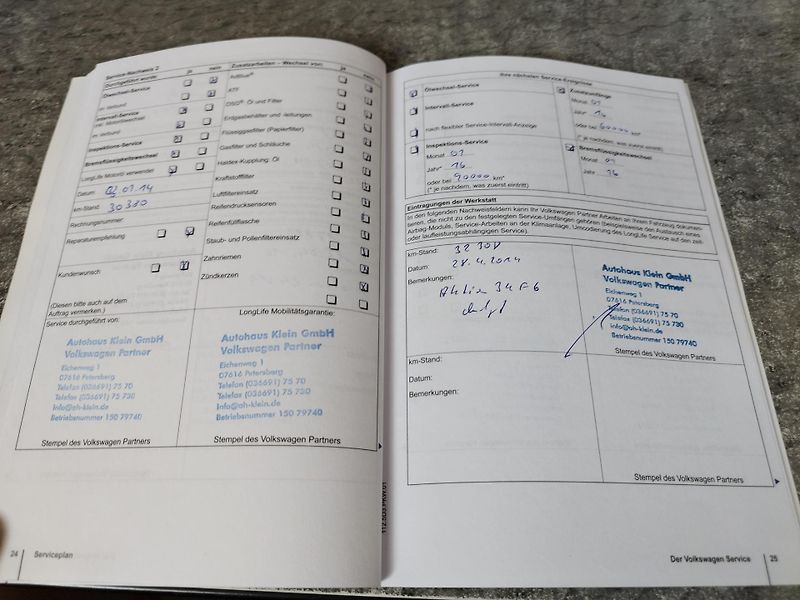 Service-Nachweis 2
Durchgeführt wurde: ja nein
Ölwechsel-Service
im Verbund
Intervall-Service
inkl. Motorölwechsel
im Verbund
Inspektions-Service
Bremsflüssigkeitswechsel
LongLife Motoröl verwendet
Datum 02.01.14
km-Stand: 30380
Rechnungsnummer
Reparaturempfehlung
Kundenwunsch
(Diesen bitte auch auf dem
Auftrag vermerken.)
Service durchgeführt von:
Autohaus Klein GmbH
Volkswagen Partner
Eichenweg 1
07616 Petersberg
Telefon (036691) 75 70
Telefax (036691) 75 730
info@ah-klein.de
Betriebsnummer 150 79740
Stempel des Volkswagen Partners
Zusatzarbeiten – Wechsel von: ja nein
AdBlue®
ATF
DSG®: Öl und Filter
Erdgasbehälter und -leitungen
Flüssiggasfilter (Papierfilter)
Gasfilter und Schläuche
Haldex-Kupplung: Öl
Kraftstofffilter
Luftfiltereinsatz
Reifendrucksensoren
Reifenfüllflasche
Staub- und Pollenfiltereinsatz
Zahnriemen
Zündkerzen
LongLife Mobilitätsgarantie:
Autohaus Klein GmbH
Volkswagen Partner
Eichenweg 1
07616 Petersberg
Telefon (036691) 75 70
Telefax (036691) 75 730
info@ah-klein.de
Betriebsnummer 150 79740
Stempel des Volkswagen Partners
24 Serviceplan
Ihre nächsten Service-Ereignisse
Ölwechsel-Service
Intervall-Service
nach flexibler Service-Intervall-Anzeige
Inspektions-Service
Monat 01
Jahr* 16
oder bei 90000 km*
(* je nachdem, was zuerst eintritt)
Zusatzumfänge
Monat 01
Jahr 16
oder bei 60000 km
(* je nachdem, was zuerst eintritt)
Bremsflüssigkeitswechsel
Monat 01
Jahr 16
Eintragungen der Werkstatt
In den folgenden Nachweisfeldern kann Ihr Volkswagen Partner Arbeiten an Ihrem Fahrzeug dokumen-
tieren, die nicht zu den festgelegten Service-Umfängen gehören (beispielsweise den Austausch eines
Airbag-Moduls, Service-Arbeiten an der Klimaanlage, Umcodierung des LongLife Service auf den zeit-
oder laufleistungsabhängigen Service).
km-Stand:
Datum: 28.4.2014
Bemerkungen:
Aktion 34F6
Autohaus Klein GmbH
Volkswagen Partner
Eichenweg 1
07616 Petersberg
Telefon (036691) 75 70
Telefax (036691) 75 730
info@ah-klein.de
Betriebsnummer 150 79740
Stempel des Volkswagen Partners
km-Stand:
Datum:
Bemerkungen:
Stempel des Volkswagen Partners
Der Volkswagen Service 25